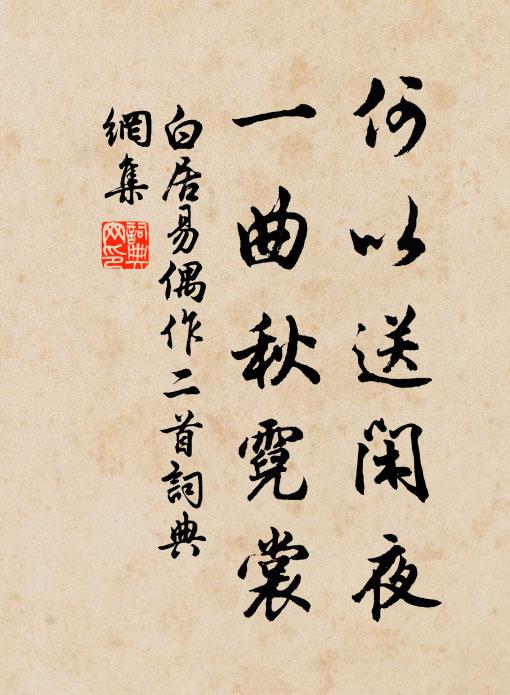 何以送閑夜
一曲秋霓裳
白居易偶作二首詞典
網集
詞典
网印